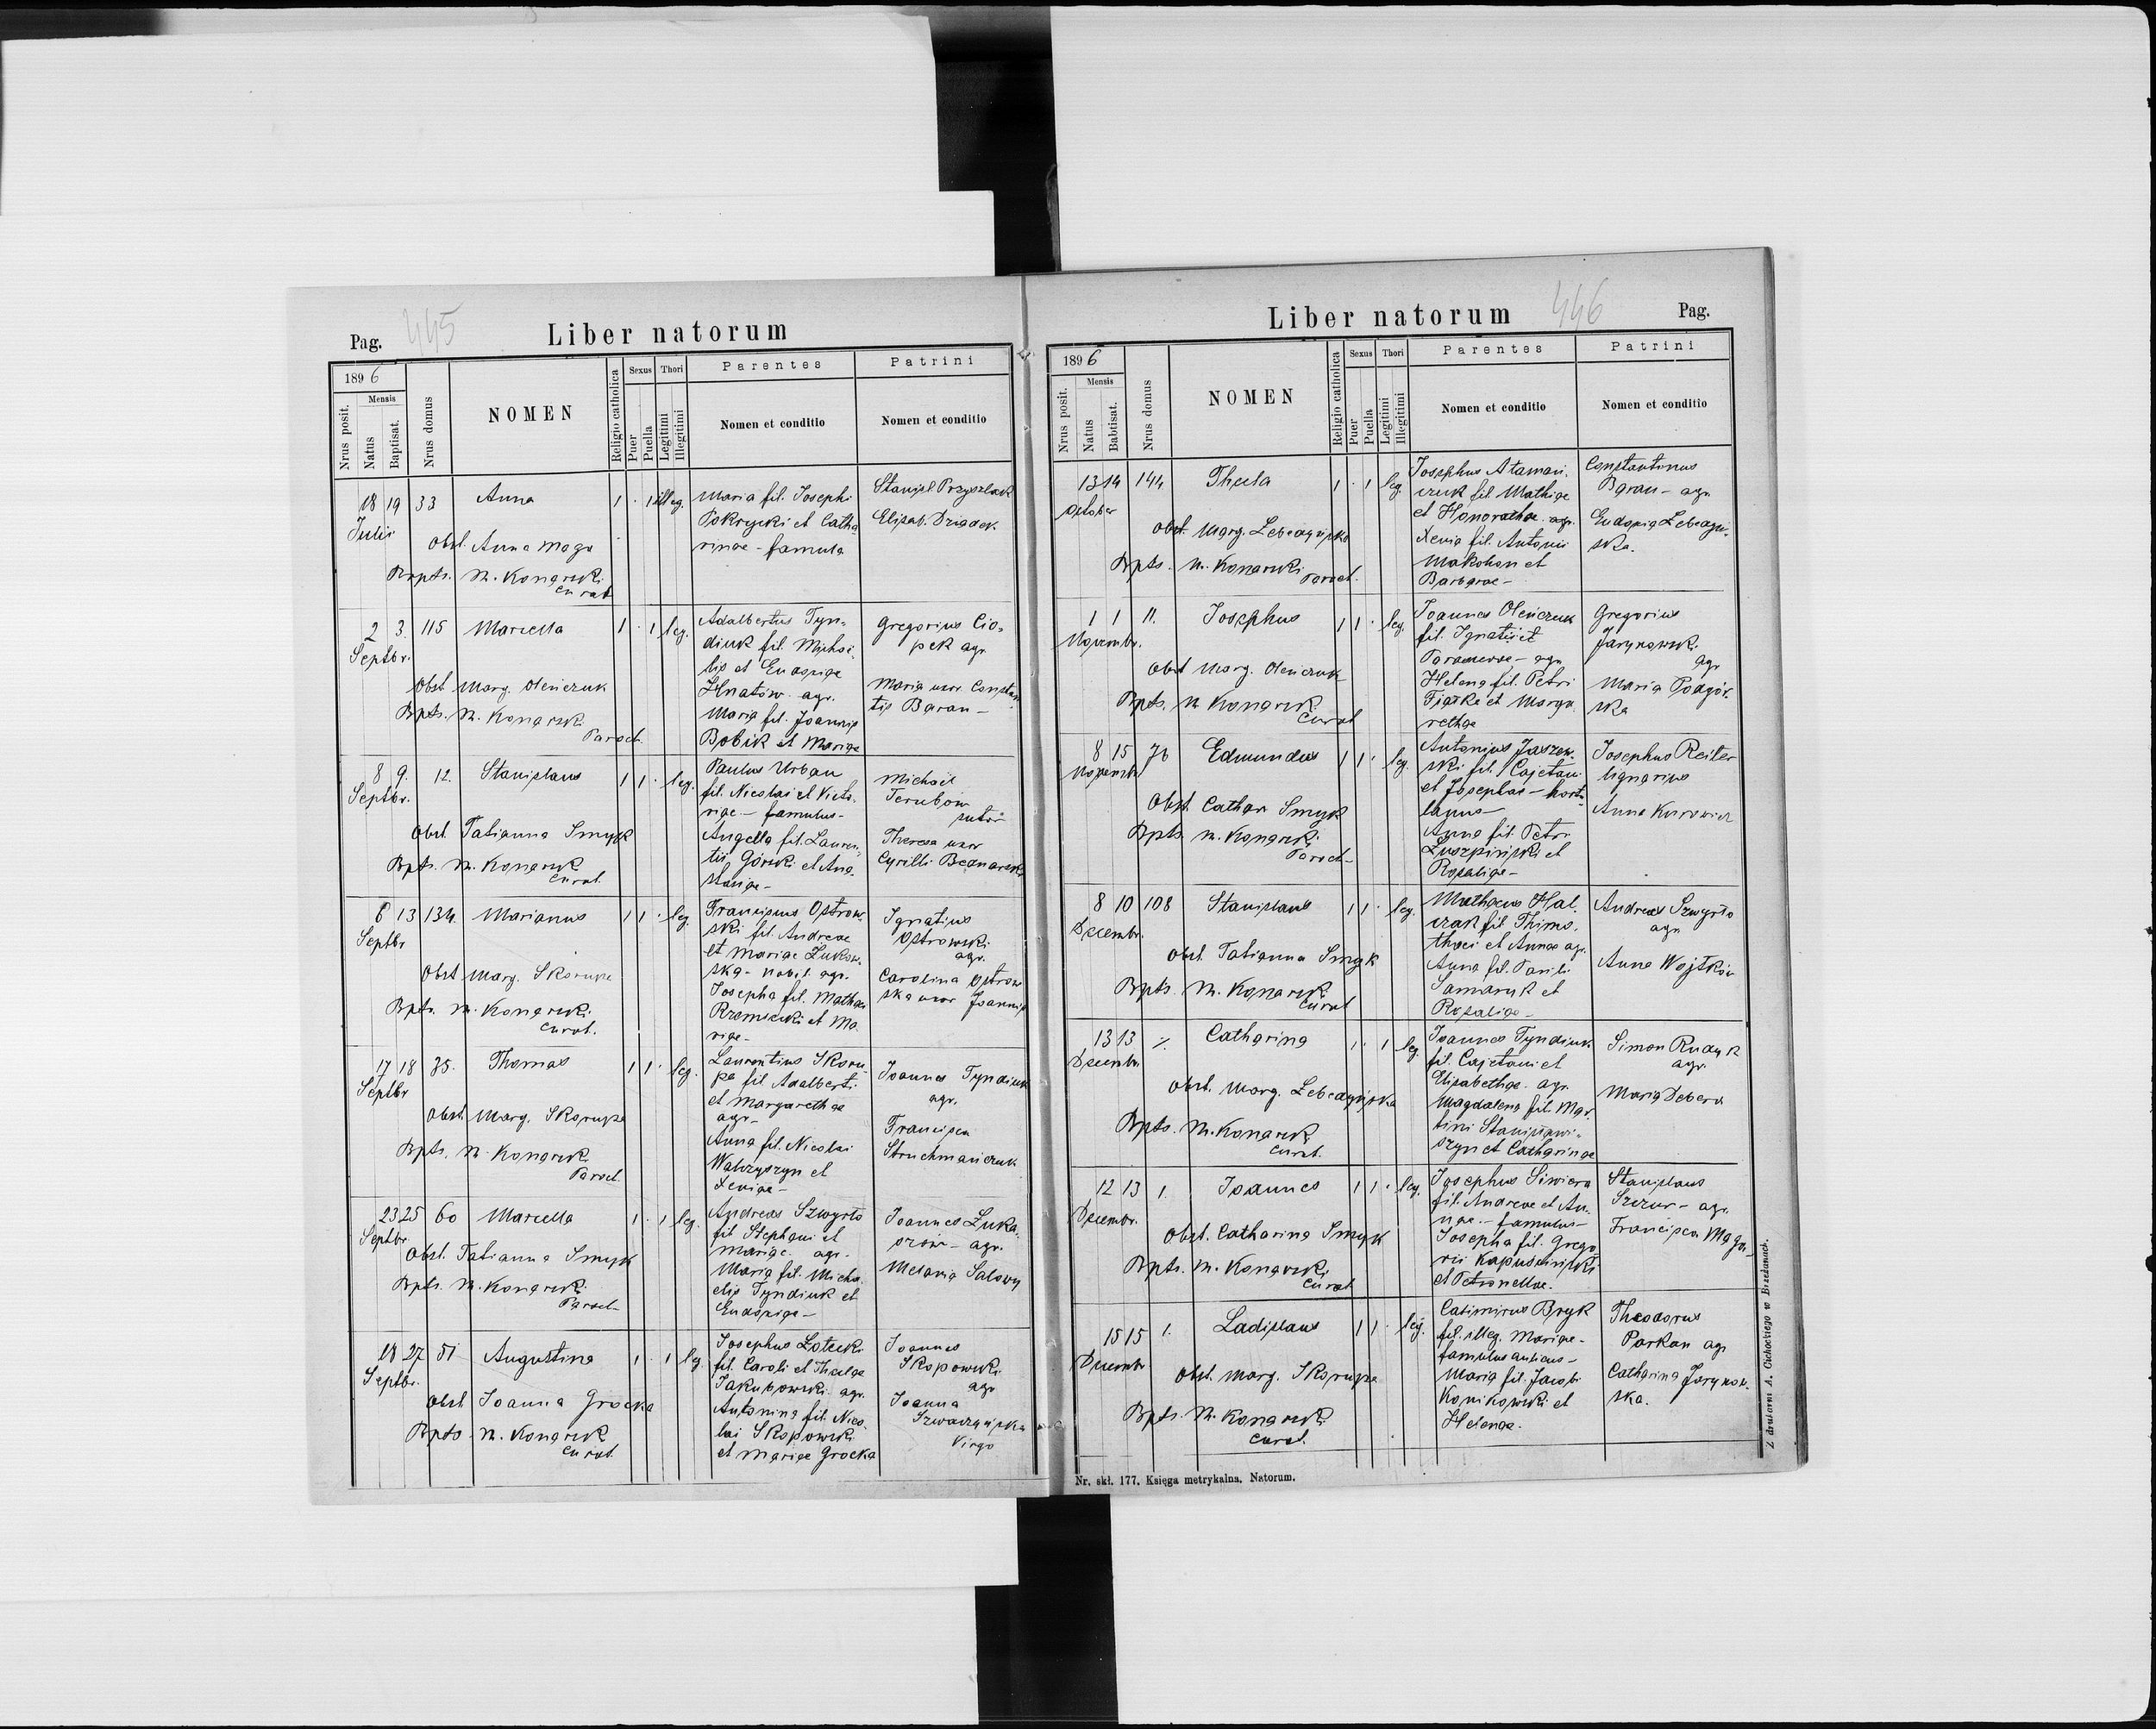 Pag. 445 Liber natorum
1896
Mensis
Nrus posit.
Natus
Baptisat.
Nrus domus
NOMEN
Religio catholica
Sexus
Puer
Puella
Thori
Legitimi
Illegitimi
Parentes
Nomen et conditio
Patrini
Nomen et conditio
18 19 33 Anna 1 · 1 illeg.
Julii
Obst. Anna Mago
Bapts. M. Konarski
Curat
Maria fil. Josephi
Pokrycki et Catha
rinae - famula
Stanisl. Przyszlak
Elisab. Dziadek
2 3. 115 Marcella 1 · 1 leg.
Septbr.
Obst Marg. Oleńczuk
Bpts. M. Konarski
Paroch.
Adalbertus Tyn-
diuk fil. Micha-
lis et Eudoxiae
Hnatów agr.
Maria fil. Joannis
Bobik et Mariae
Gregorius Cio-
pek agr.
Maria uxor Constan
tis Baran -
8 9. 12. Stanislaus 1 1 · leg.
Septbr.
Obst. Tatianna Smyk
Bpts. M. Konarski
Curat.
Paulus Urban
fil. Nicolai et Victo-
riae - famulus -
Angella fil. Lauren-
tii Górski et Ana-
stasiae -
Michael
sutor
Theresa uxor
Cyrilli Bednarski
6 13 134. Marianus 1 1 · leg.
Septbr
Obst Marg. Skorupa
Bpts. M. Konarski
Curat.
Franciscus Ostrow-
ski fil. Andreae
et Mariae Żukow-
ska - nobil. agr.
Josepha fil. Mathaei
et Ma-
riae -
Ignatius
Ostrowski
agr.
Carolina Ostrow
ska uxor Joannis
17 18 35. Thomas 1 1 · leg.
Septbr
Obst. Marg. Skorupa
Bpts. M. Konarski
Paroch.
Laurentius Skoru-
pa fil Adalberti
et Margarethae
agr.
Anna fil. Nicolai
Wawryszyn et
Xeniae -
Joannes Tyndiuk
agr.
Francisca
Struchmańczuk
23 25 60 Marcella 1 · 1 leg.
Septbr
Obst. Tatianna Smyk
Bpts. M. Konarski
Paroch
Andreas Szwyrło
fil Stephani et
Mariae agr.
Maria fil. Micha-
elis Tyndiuk et
Eudoxiae -
Joannes Łuka-
szów - agr.
Melania Salowy
18 27 51 Augustina 1 · 1 leg.
Septbr.
Obst Joanna Grocka
Bpts M. Konarski
Curat
Josephus Zotecki
fil. Caroli et Theclae
Jakubowski agr.
Antonina fil. Nico-
lai Skopowski
et Mariae Grocka
Joannes
Skopowski
agr
Joanna
Virgo
Liber natorum 446 Pag.
1896
Mensis
Nrus posit.
Natus
Babtisat.
Nrus domus
NOMEN
Religio catholica
Sexus
Puer
Puella
Thori
Legitimi
Illegitimi
Parentes
Nomen et conditio
Patrini
Nomen et conditio
13 14 144 Thecla 1 · 1 leg.
October
Obst. Marg. Lebedyńska
Bpts. M. Konarski
Paroch.
Josephus Ataman-
czuk fil Mathiae
et Honorathae agr.
Xenia fil. Antonii
Makohon et
Barbarae -
Constantinus
Baran - agr
Eudoxia Lebedyń-
ska.
1 1 11. Josephus 1 1 · leg.
Novembr.
Obst Marg. Oleńczuk
Bpts. M Konarski
Curat
Joannes Oleńczuk
fil. Ignatii et
Parascevae - agr
Helena fil. Petri
Fiałka et Marga-
rethae
Gregorius
Jarynowski
agr
Maria Podgór-
ska
8 15 76 Edmundus 1 1 · leg.
Novembr
Obst. Cathar Smyk
Bpts M. Konarski
Paroch
Antonius Jaszow-
ski fil. Cajetani
et Josephae - hortu-
lanus -
Anna fil. Petri
Łuszpiński et
Rosaliae -
Josephus Reiter
lignarius
Anna Kurowicz
8 10 108 Stanislaus 1 1 · leg.
Decembr.
Obst. Tatianna Smyk
Bpts. M. Konarski
Curat
Mathaeus Hal-
czak fil. Thimo-
thaei et Annae agr.
Anna fil. Vasili
Samaryk et
Rosaliae -
Andreas Szwyrło
agr
Anna Wojtków
13 13 Catharina 1 · 1 leg
Decembr
Obst. Marg. Lebedyńska
Bpts. M. Konarski
Curat.
Joannes Tyndiuk
fil. Cajetani et
Elisabethae agr.
Magdalena fil. Mar-
tini Stanisławi-
szyn et Catharinae
Simon Rudyk
agr.
Maria Debera
12 13 1. Joannes 1 1 · leg.
Decembr.
Obst. Catharina Smyk
Bpts. M. Konarski
Curat
Josephus Siwiera
fil. Andreae et An-
nae - famulus -
Josepha fil. Grego-
rii Kapuściński
et Petronellae.
Stanislaus
Szczur - agr.
Francisca
15 15 1. Ladislaus 1 1 · leg.
Decembr
Obst. Marg. Skorupa
Bpts. M. Konarski
Curat.
Casimirus Bryk
fil. illeg. Mariae -
famulus aulicus -
Maria fil. Jacobi
Konikowski et
Helenae.
Theodorus
Parkan agr
Catharina Jarynow-
ska.
Nr. skł. 177. Księga metrykalna. Natorum.
Z drukarni A. Cichockiego w Brzeżanach.